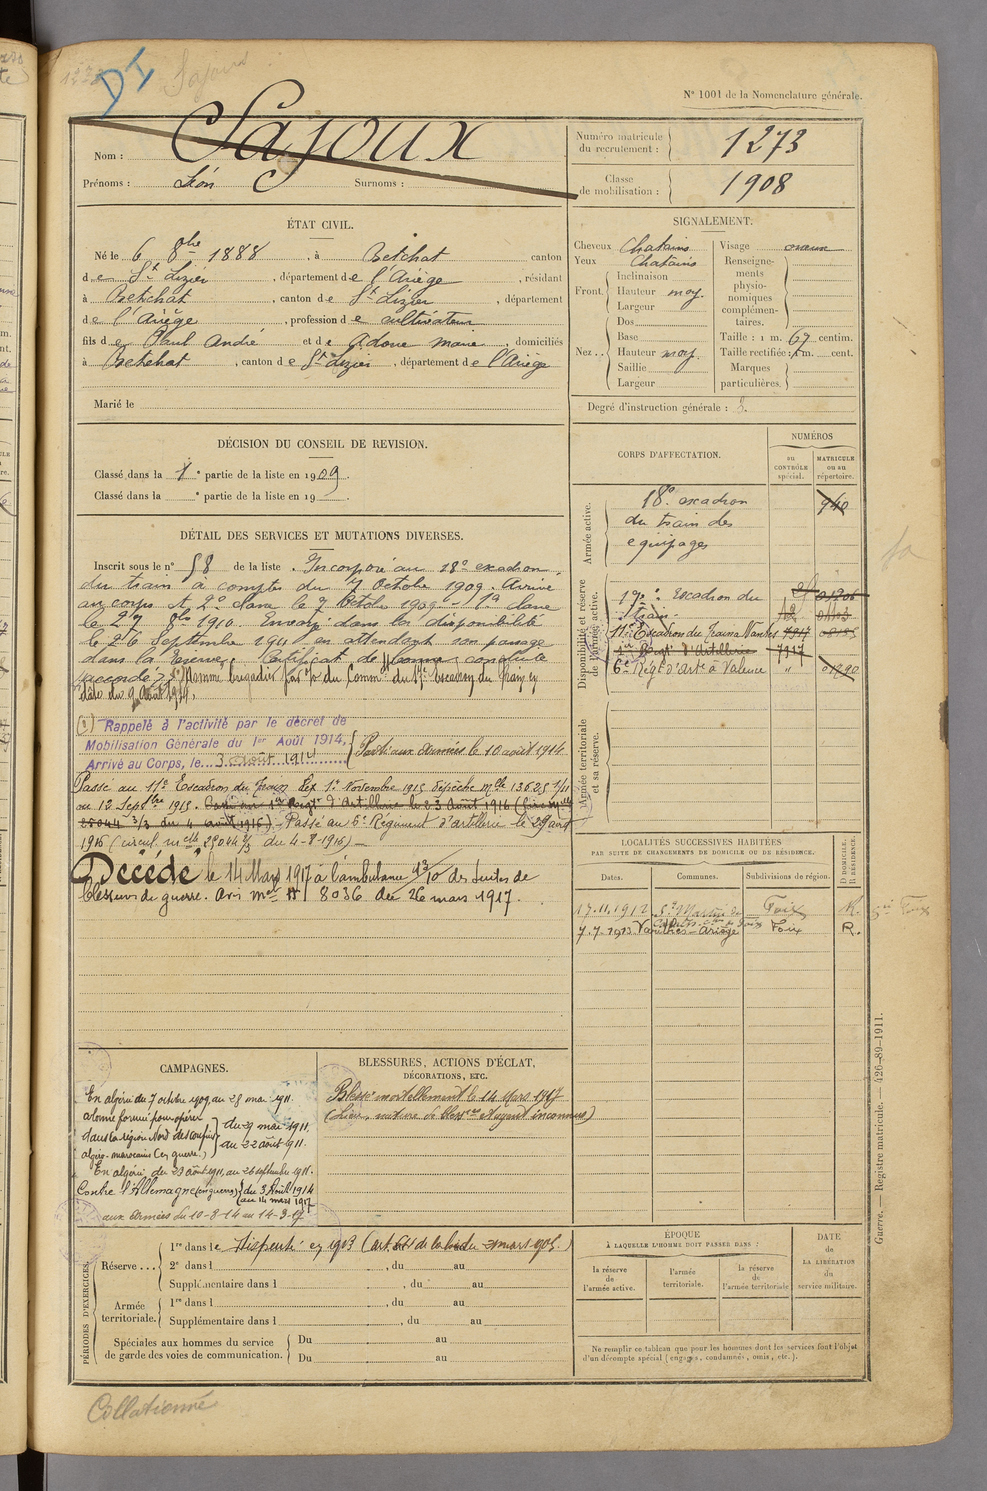 DI
Sajoux
N° 1001 de la Nomenclature générale.
Nom : Sajoux
Prénoms : Léon Surnoms :
Numéro matricule du recrutement : 1273
Classe de mobilisation : 1908
ÉTAT CIVIL.
Né le 6 8bre 1888, à Betchat canton
de St Lizier, département de l'Ariège, résidant
à Betchat, canton de St Lizier, département
de l'Ariège, profession de cultivateur
fils de Paul André et de Adoue marie, domiciliés
à Betchat, canton de St Lizier, département de l'Ariège
Marié le
SIGNALEMENT.
Cheveux Chatains
Yeux Chatains
Front. Inclinaison
Hauteur moy.
Largeur
Nez.. Dos
Base
Hauteur moy.
Saillie
Largeur
Visage
Renseignements physionomiques complémentaires.
Taille : 1 m. 67 centim.
Taille rectifiée : 1 m. cent.
Marques particulières.
Degré d'instruction générale : 3.
DÉCISION DU CONSEIL DE REVISION.
Classé dans la 1e partie de la liste en 1909.
Classé dans la e partie de la liste en 19
DÉTAIL DES SERVICES ET MUTATIONS DIVERSES.
Inscrit sous le n° 58 de la liste. Incorporé au 18e escadron
du train à compter du 7 Octobre 1909. Arrivé
au corps et 2e classe le 7 Octobre 1909. 1e classe
le 27 8bre 1910. Envoyé dans la disponibilité
le 26 Septembre 1911 en attendant son passage
dans la réserve. Certificat de bonne conduite
accordé. Nommé brigadier par du Commt du 17e Escadron du Train en
date du 9 août 1914.
(1) Rappelé à l'activité par le décret de
Mobilisation Générale du 1er Août 1914,
Arrivé au Corps, le 3 août 1914
Parti aux Armées le 10 août 1914
Passé au 11e Escadron du Train le 1er Novembre 1915 Dépêche mlle 13625 1/11
du 12 Septbre 1915. Passé au 1er Régt d'Artillerie le 23 Août 1916 (
28044 3/3 du 4 août 1916). Passé au 6e Régiment d'artillerie le 29 août
1916 (circul. mlle 28044 2/3 du 4-8-1916).
Décédé le 14 Mars 1917 à l'ambulance 13/10 des suites de
blessures de guerre. Avis mel 8036 du 26 mars 1917.
CORPS D'AFFECTATION.
NUMÉROS
au CONTRÔLE spécial.
MATRICULE ou au répertoire.
Armée active.
18e escadron
du train des
équipages
940
Disponibilité et réserve de l'armée active.
Escadron du
Train
11e Escadron du Train à Nantes 7917
1er Régt d'Artillerie 7917
6e Régt d'Artie à Valence " 01290
Armée territoriale et sa réserve.
LOCALITÉS SUCCESSIVES HABITÉES
PAR SUITE DE CHANGEMENTS DE DOMICILE OU DE RÉSIDENCE.
Dates. Communes. Subdivisions de région. D DOMICILE. R RÉSIDENCE.
17.11.1912 St Martin de Foix R.
7.7.1913 Ariège Foix R.
CAMPAGNES.
En algérie du 7 octobre 1909 au 28 mai 1911.
colonne formée pour opérer
dans la région Nord des confins
algéro-marocains (en guerre) du 29 mai 1911
au 22 août 1911.
En algérie du 23 août 1911, au 26 septembre 1911.
Contre l'Allemagne (en guerre) du 3 Août 1914
au 14 mars 1917
aux Armées du 10-8-14 au 14-3-17
BLESSURES, ACTIONS D'ÉCLAT,
DÉCORATIONS, ETC.
Blessé mortellement le 14 Mars 1917
(Lieu, nature de bless. et agent inconnus)
PÉRIODES D'EXERCICES.
Réserve... 1re dans le Dispensé en 1913 (art. de la loi du 21 mars 1905.)
2e dans l , du au
Supplémentaire dans l , du au
Armée territoriale. 1re dans l , du au
Supplémentaire dans l , du au
Spéciales aux hommes du service de garde des voies de communication. Du au
Du au
ÉPOQUE
À LAQUELLE L'HOMME DOIT PASSER DANS :
la réserve de l'armée active.
l'armée territoriale.
la réserve de l'armée territoriale
DATE de LA LIBÉRATION du service militaire.
Ne remplir ce tableau que pour les hommes dont les services font l'objet
d'un décompte spécial (engagés, condamnés, omis, etc.).
Guerre. — Registre matricule. — 426-89-1911.
Collationné